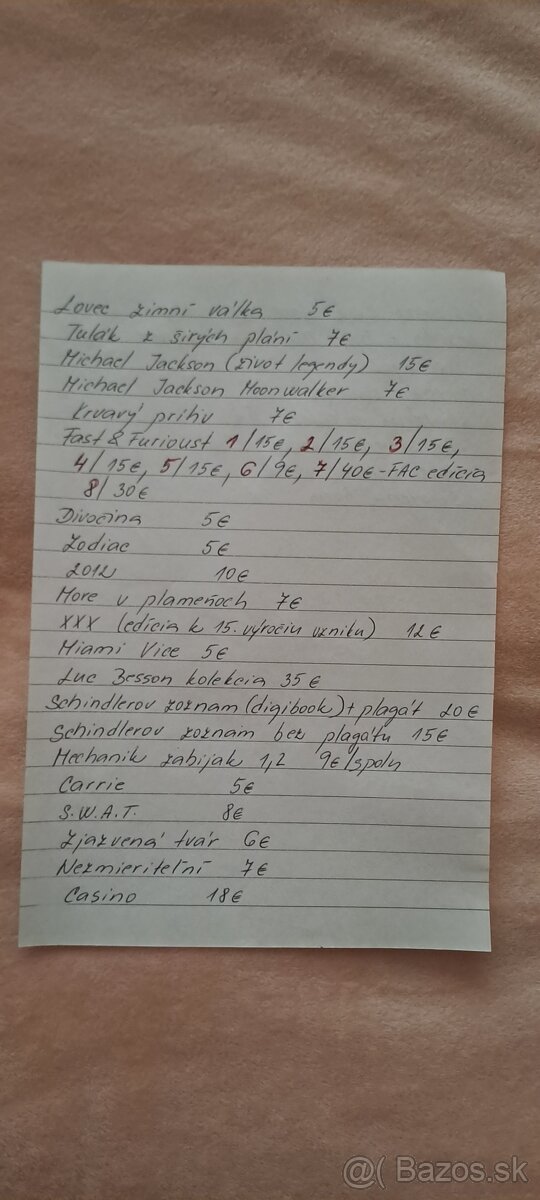 Lovec zimní válka 5€
Tulák z širých plání 7€
Michael Jackson (život legendy) 15€
Michael Jackson Moonwalker 7€
Krvavý príliv 7€
Fast & Furioust 1/15€, 2/15€, 3/15€,
4/15€, 5/15€, 6/9€, 7/40€-FAC edícia
8/30€
Divočina 5€
Zodiac 5€
2012 10€
More v plameňoch 7€
XXX (edícia k 15. výročiu vzniku) 12€
Miami Vice 5€
Luc Besson kolekcia 35€
Schindlerov zoznam (digibook) + plagát 20€
Schindlerov zoznam bez plagátu 15€
Mechanik zabijak 1,2 9€/spolu
Carrie 5€
S.W.A.T. 8€
Zjazvená tvár 6€
Nezmieriteľní 7€
Casino 18€
@( Bazos.sk